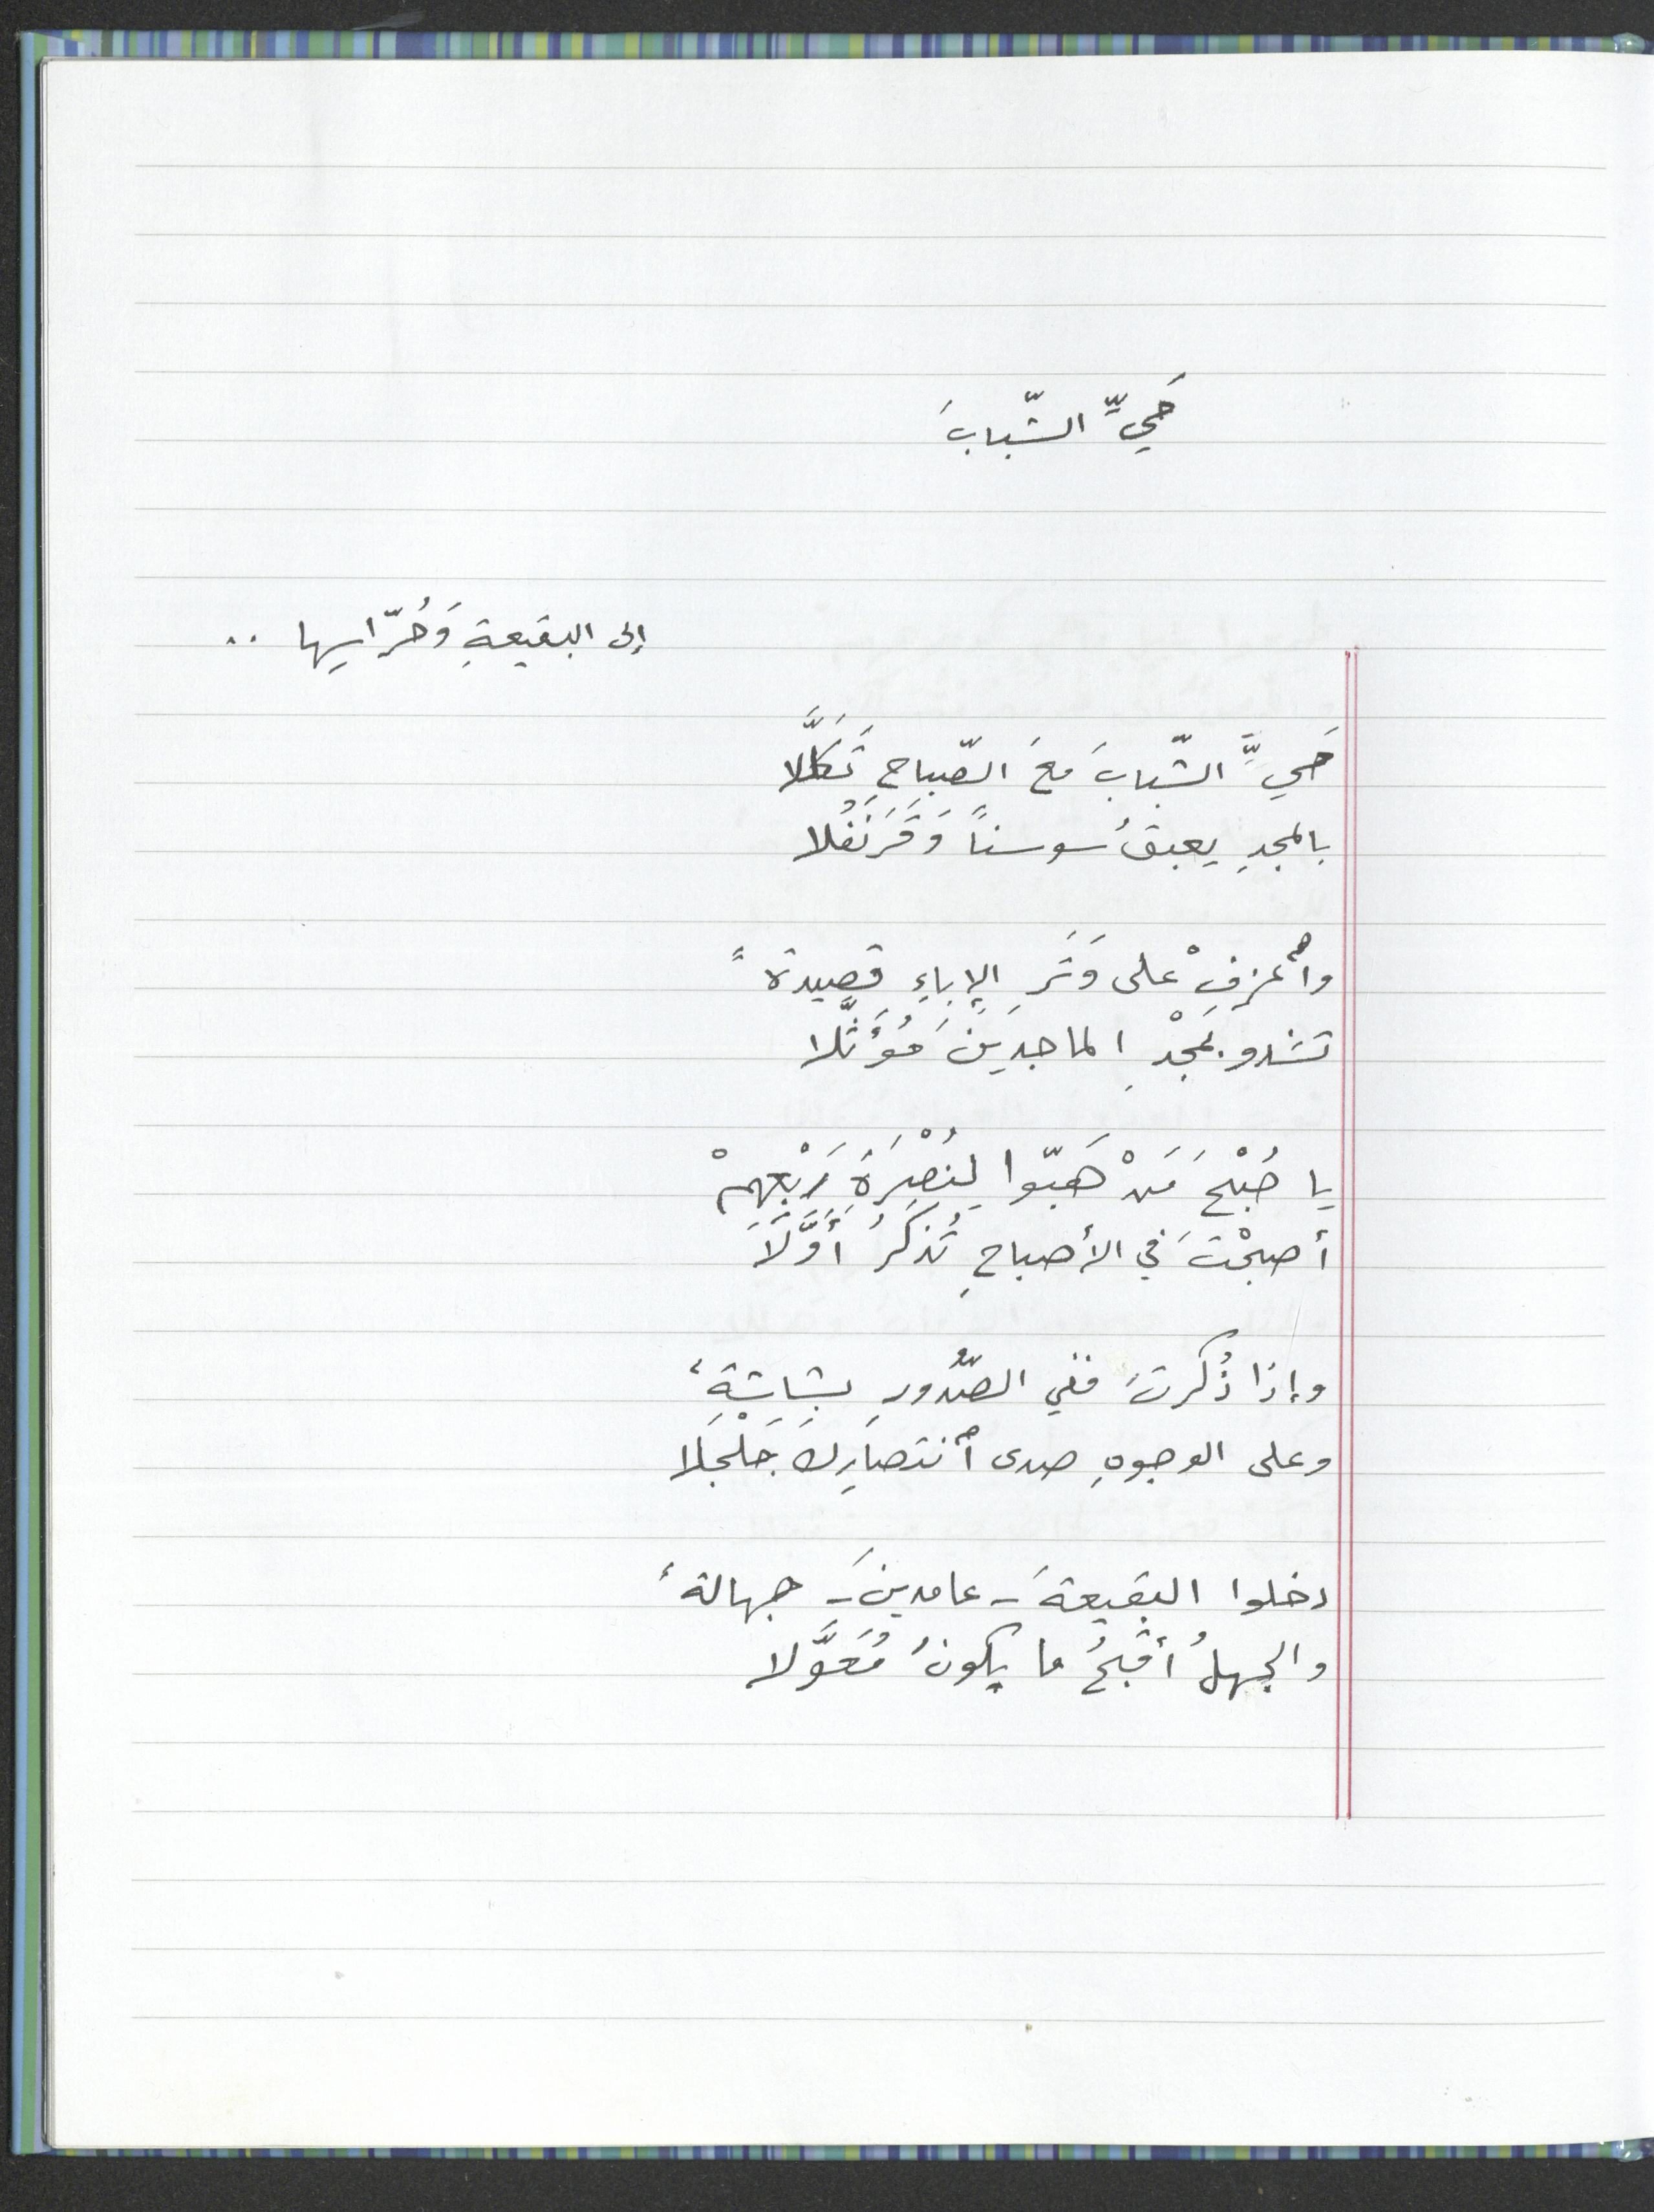 حَيِّ الشّبابَ
إلى البقيعةِ وَحُرّاسِها ..
حَيِّ الشّبابَ مَعَ الصّباحِ تَكَلَّلا
بالمجدِ يعبقُ سوسناً وَقَرَنفُلا
وٱعزفْ على وَتَرِ الإباءِ قصيدةً
تشدو بمَجْدِ الماجدِينَ مُؤَثَّلا
يا صُبْحَ مَنْ هَبّوا لِنُصْرَةِ رَبْعِهمْ
أصبحْتَ في الأصباحِ تُذكَرُ أَوَّلَا
وإذا ذُكرتَ ففي الصُّدورِ بشاشةٌ
وعلى الوجوهِ صدى ٱنتصارِكَ جَلْجَلا
دخلوا البقيعةَ - عامدينَ - جهالةً
والجهلُ أقبحُ ما يكونُ مُعَوَّلا